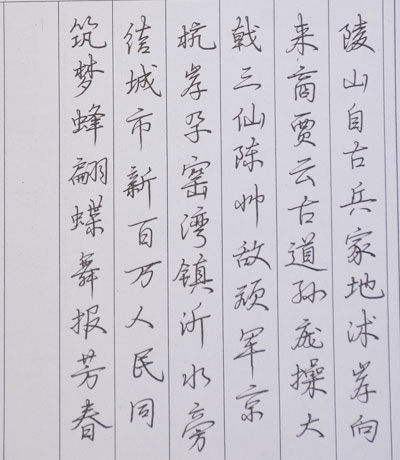 陵山自古兵家地沭岸向
来商贾云古道孙庞操大
戟三仙陈帅敌顽军京
杭岸孕窑湾镇沂水旁
结城市新百万人民同
筑梦蜂翩蝶舞报芳春